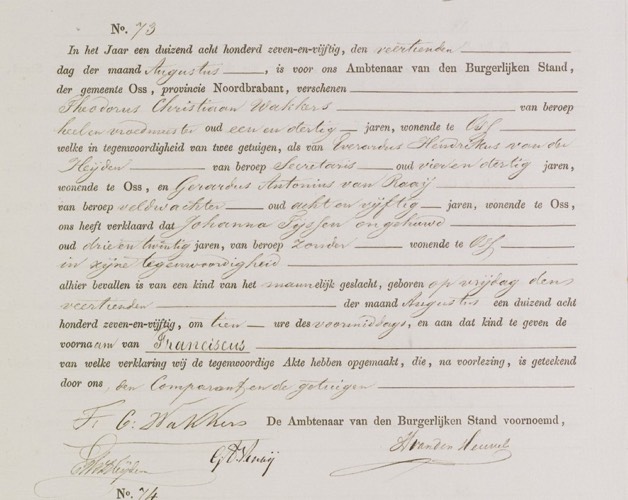 No. 73
In het Jaar een duizend acht honderd zeven-en-vijftig, den veertienden
dag der maand Augustus, is voor ons Ambtenaar van den Burgerlijken Stand,
der gemeente Oss, provincie Noordbrabant, verschenen
Theodorus Christiaan Wakkers van beroep
heel en vroedmeester oud een en dertig jaren, wonende te Oss
welke in tegenwoordigheid van twee getuigen, als van Everardus Hendrikus van der
Heijden van beroep Secretaris oud vier en dertig jaren,
wonende te Oss, en Gerardus Antonius van Raaij
van beroep veldwachter oud acht en vijftig jaren, wonende te Oss,
ons heeft verklaard dat Johanna Tijssen ongehuwd
oud drie en twintig jaren, van beroep Zonder wonende te Oss
in zijne tegenwoordigheid
alhier bevallen is van een kind van het mannelijk geslacht, geboren op vrijdag den
veertienden der maand Augustus een duizend acht
honderd zeven-en-vijftig, om tien ure des voormiddags, en aan dat kind te geven de
voornaam van Franciscus
van welke verklaring wij de tegenwoordige Akte hebben opgemaakt, die, na voorlezing, is geteekend
door ons, den Comparant en de getuigen
C: Wakkers De Ambtenaar van den Burgerlijken Stand voornoemd,
vdHeijden vRaaij HvandenHeuvel
No. 74